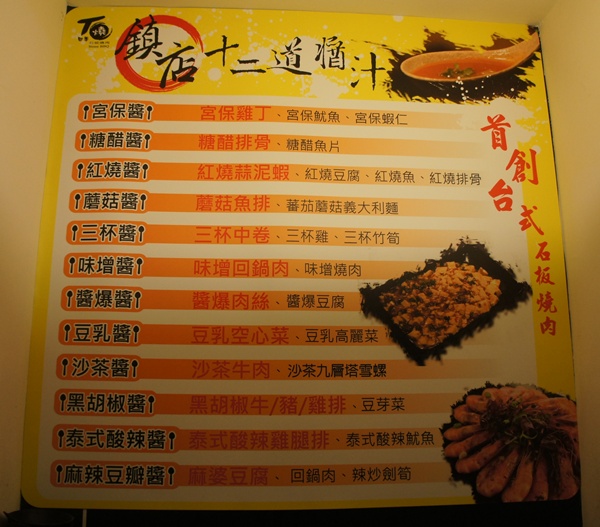 T燒
鎮店十二道醬汁
宮保醬 宮保雞丁、宮保魷魚、宮保蝦仁
糖醋醬 糖醋排骨、糖醋魚片
紅燒醬 紅燒蒜泥蝦、紅燒豆腐、紅燒魚、紅燒排骨
蘑菇醬 蘑菇魚排、蕃茄蘑菇義大利麵
三杯醬 三杯中卷、三杯雞、三杯竹筍
味增醬 味增回鍋肉、味增燒肉
醬爆醬 醬爆肉絲、醬爆豆腐
豆乳醬 豆乳空心菜、豆乳高麗菜
沙茶醬 沙茶牛肉、沙茶九層塔雪螺
黑胡椒醬 黑胡椒牛/豬/雞排、豆芽菜
泰式酸辣醬 泰式酸辣雞腿排、泰式酸辣魷魚
麻辣豆瓣醬 麻婆豆腐、回鍋肉、辣炒劍筍
首創台式石板燒肉